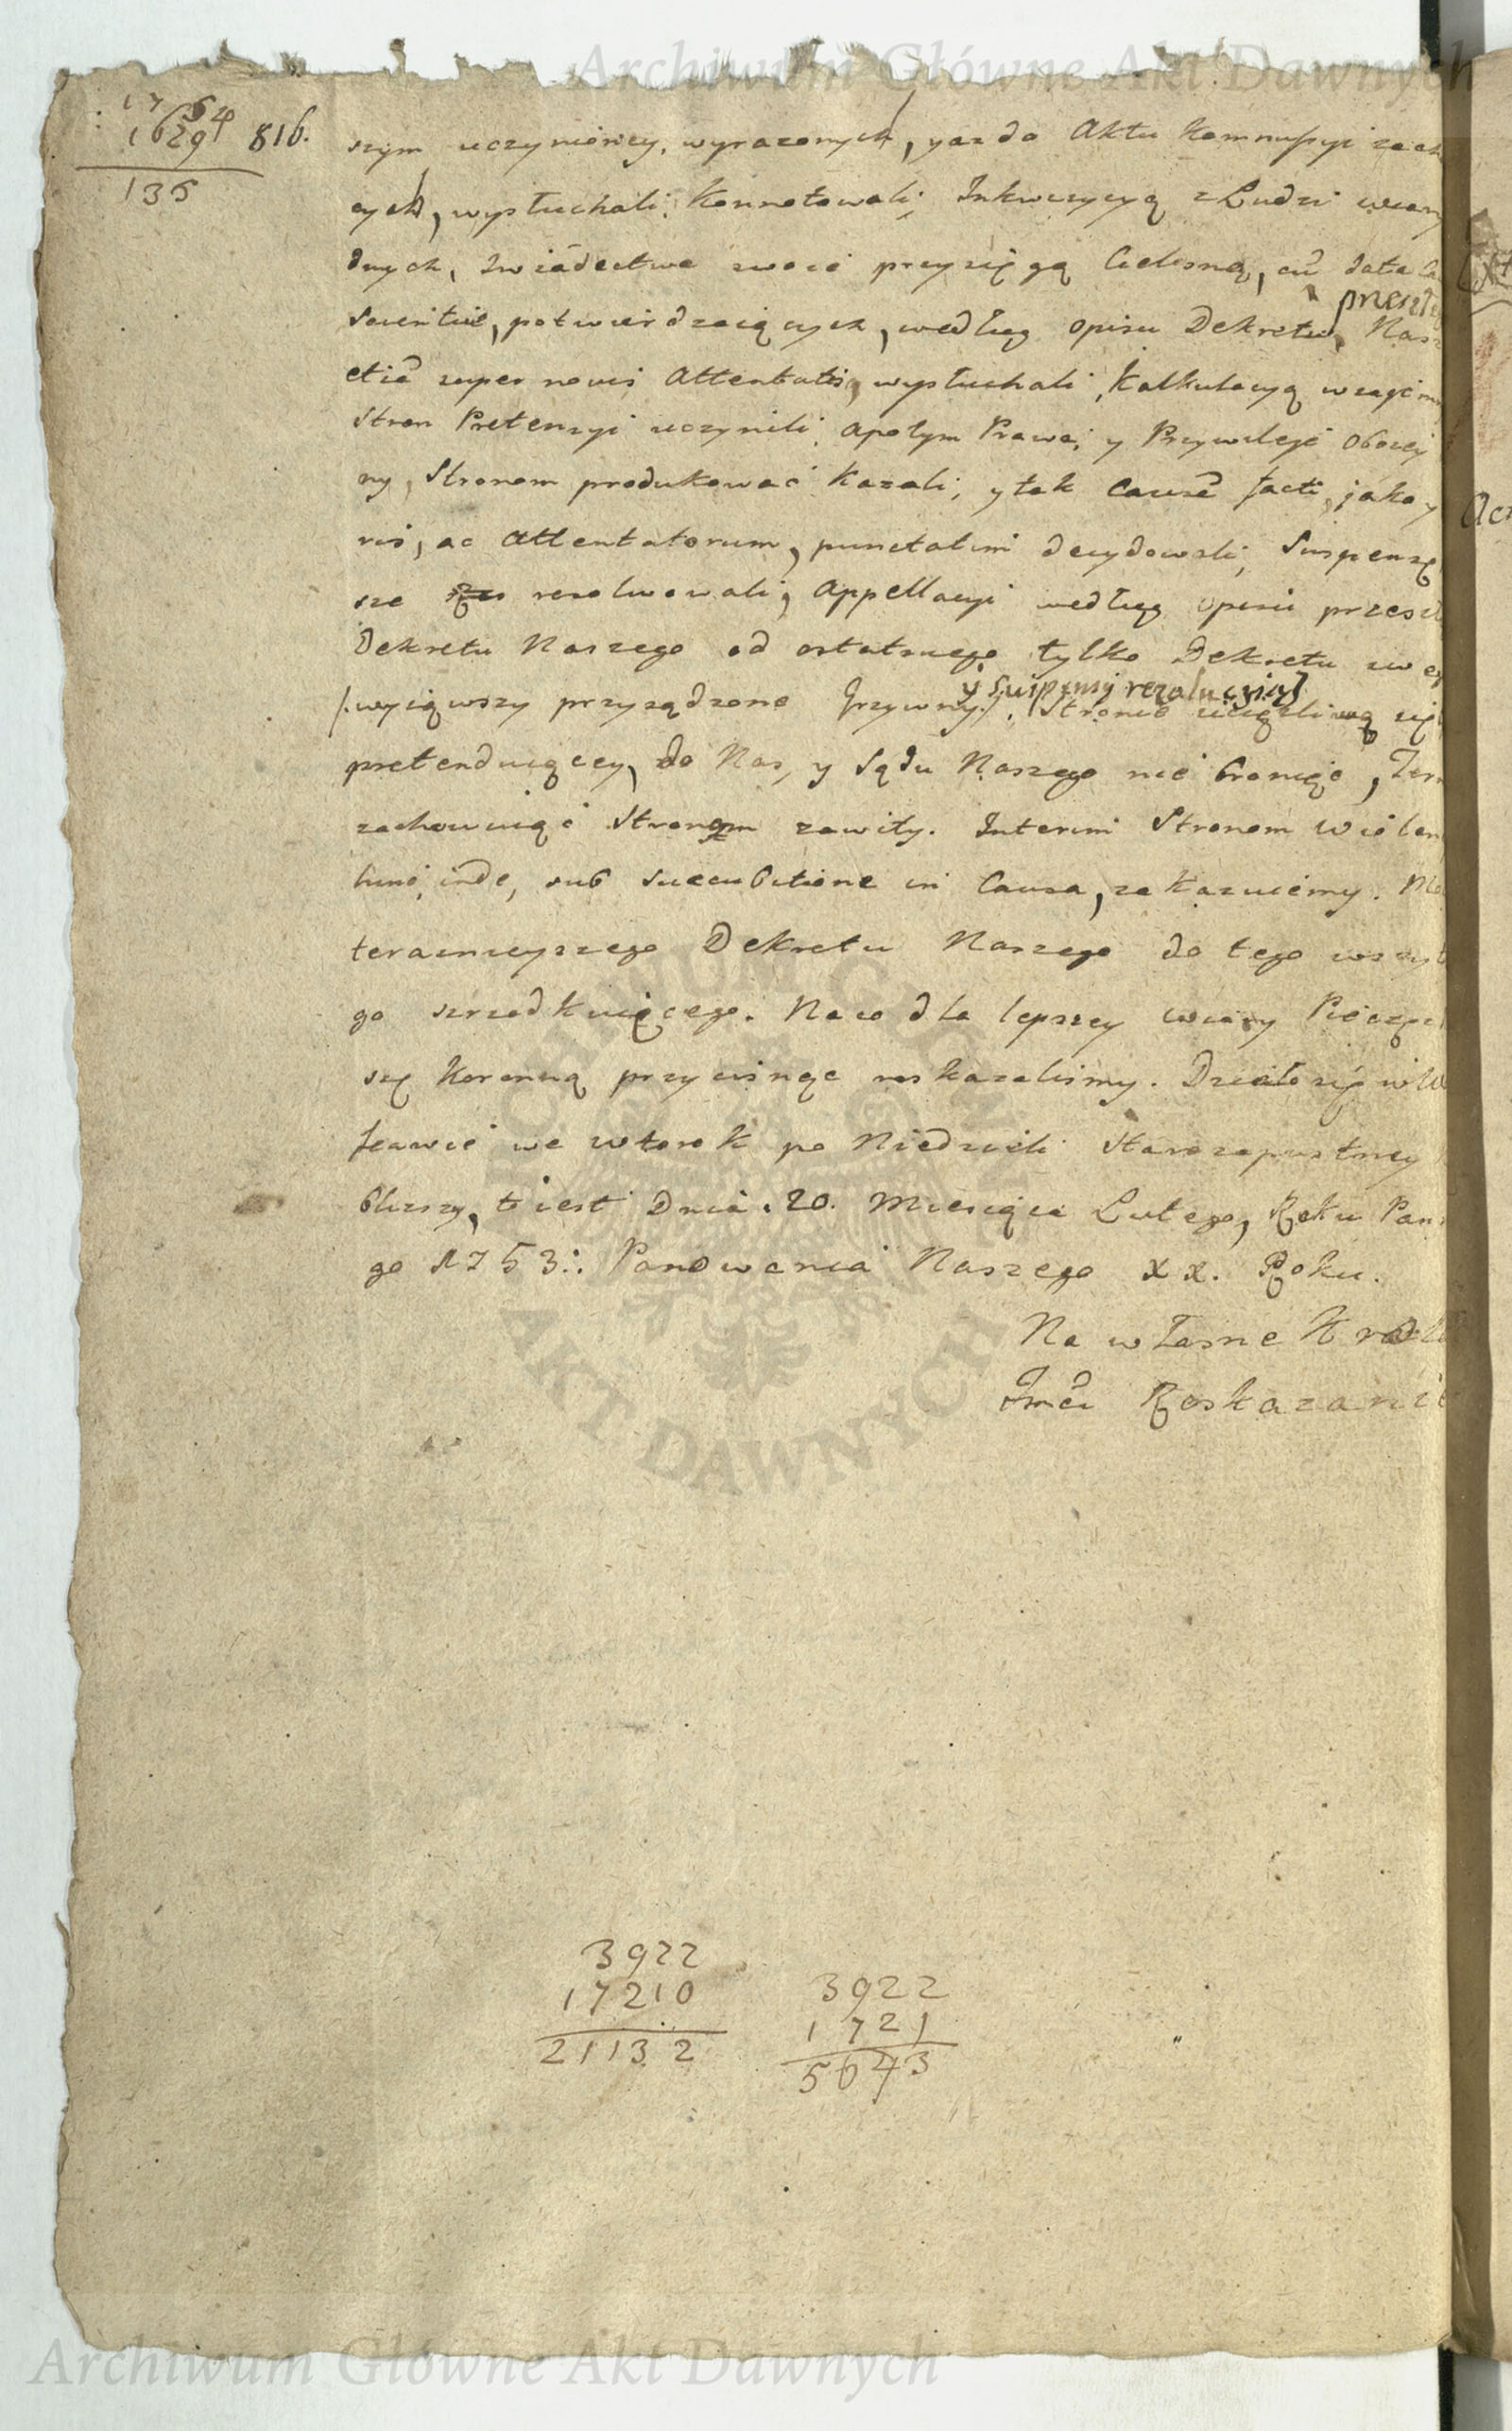 Archiwum Główne Akt Dawnych
1764
1629 816.
135
szym uczynioney, wyrazonych, yaz do Aktu Kommissyi zach
cych, wysłuchali, Konnotowali, Inkwizycyą z Ludzi wiary
dnych, swiadectwa swoie przysięgą Cielesną, cū data
scientiæ, potwierdzaiących, według opisu Dekretu, Nasz
przeszłe
etiã super novis Attentatis, wysłuchali, Kalkulacyą wzaięm
Stron Pretensyi uczynili, apotym Prawa, y Przywileje Oboiey
ny, Stronom produkować kazali, y tak Causã facti, jako y
ris, ac Attentatorum, punctatim decydowali, Suspensę
sze rezolwowali, Appellacyi według opisu przeszł
Dekretu Naszego od ostatniego tylko Dekretu swe
y suspensy rezolucyią
/.wyiąwszy przysądzone Grzywny./. Stronie uciązliwą się
pretenduiącey, do Nas, y Sądu Naszego nie broniąc, Ter
zachowuiąc Stronom zawity. Interim Stronom Wiolen
hinc, inde, sub succubitione in Causa, zakazuiemy. Mo
teraznieyszego Dekretu Naszego do tego wszyt
go szrodkuiącego. Na co dla lepszey wiary Pieczęć
szę Koronną przycisnąc roskazalismy. Działo się w W
szawie we wtorek po Niedzieli Starozapustney
bliszy, to iest Dnia .20. Miesiąca Lutego, Roku Pan
go 1753.: Panowania Naszego xx. Roku.
Na własne Krol
Jmci Roskazanie
ARCHIWUM GŁÓWNE AKT DAWNYCH
3922
17210
21132
3922
1721
5643
Archiwum Główne Akt Dawnych